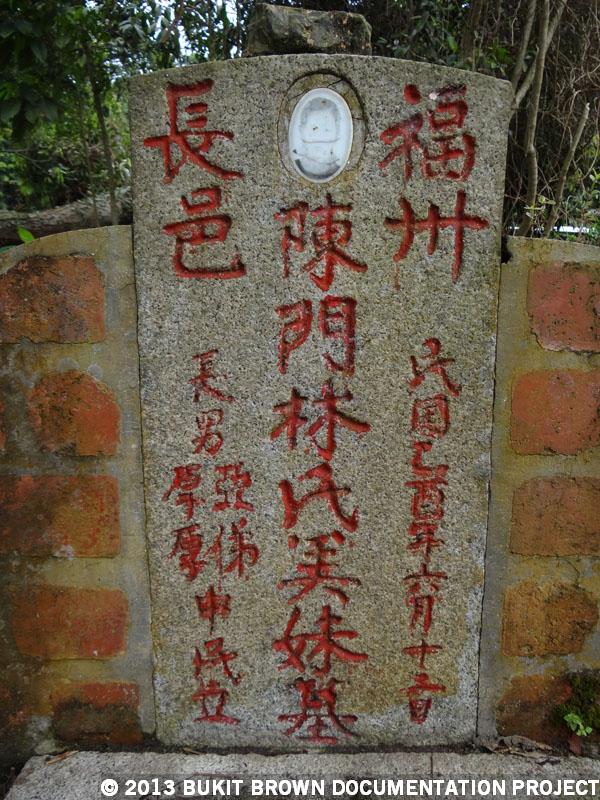 福州
民国乙酉年六月十二日
陳門林氏美妹墓
長邑
長男
亞俤
厚
民立
© 2013 BUKIT BROWN DOCUMENTATION PROJECT